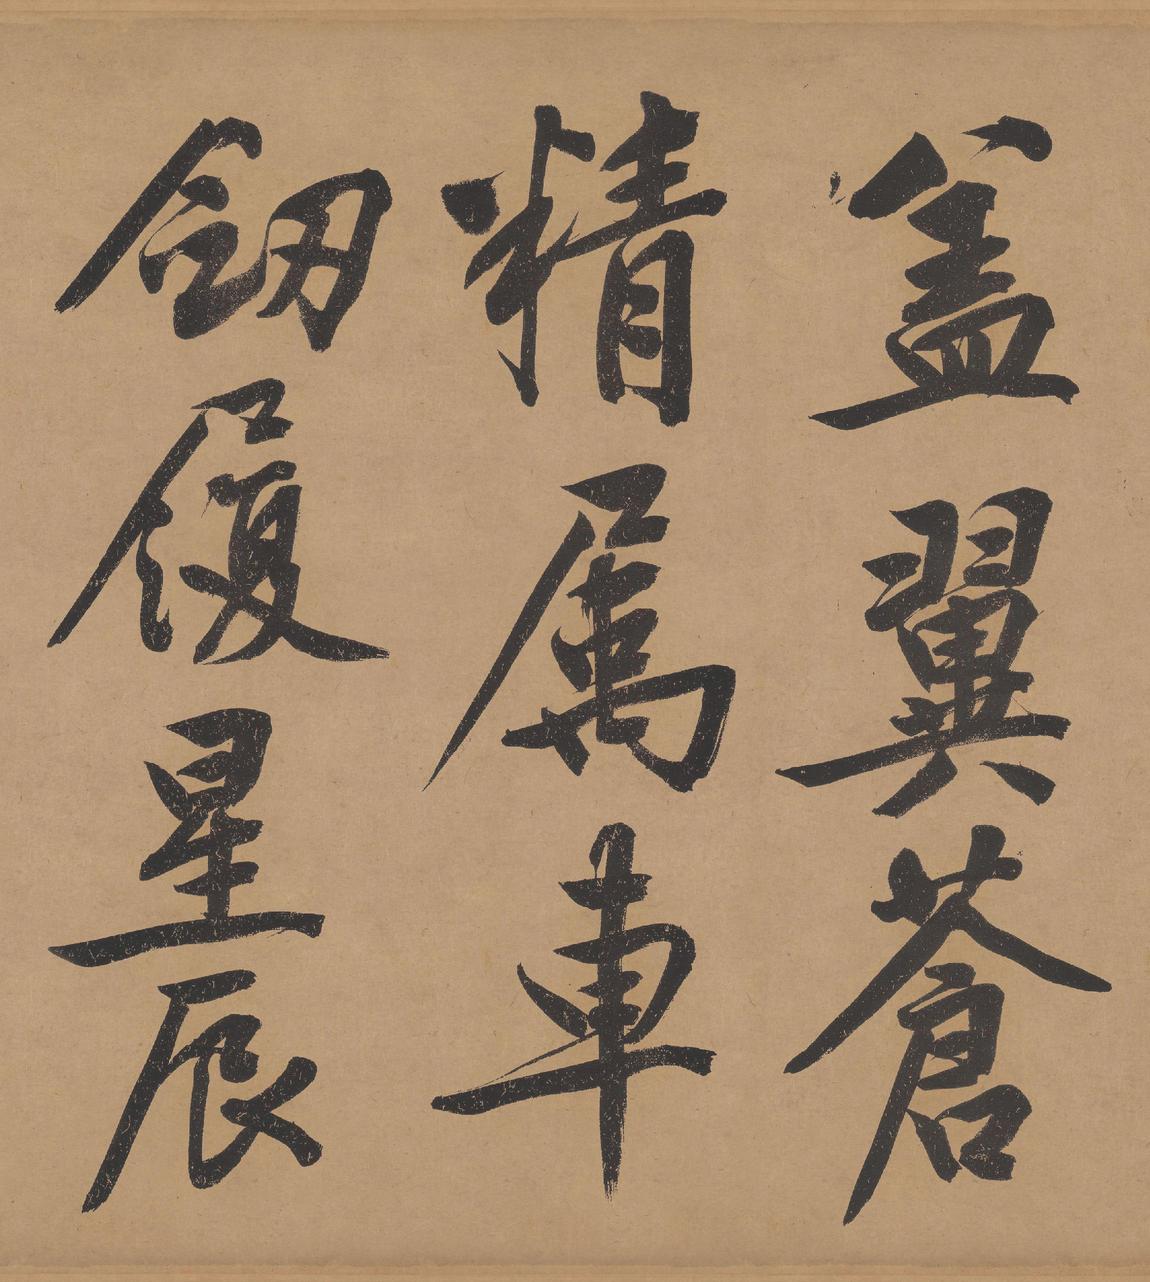 盖翼蒼
精屬車
劒履星辰